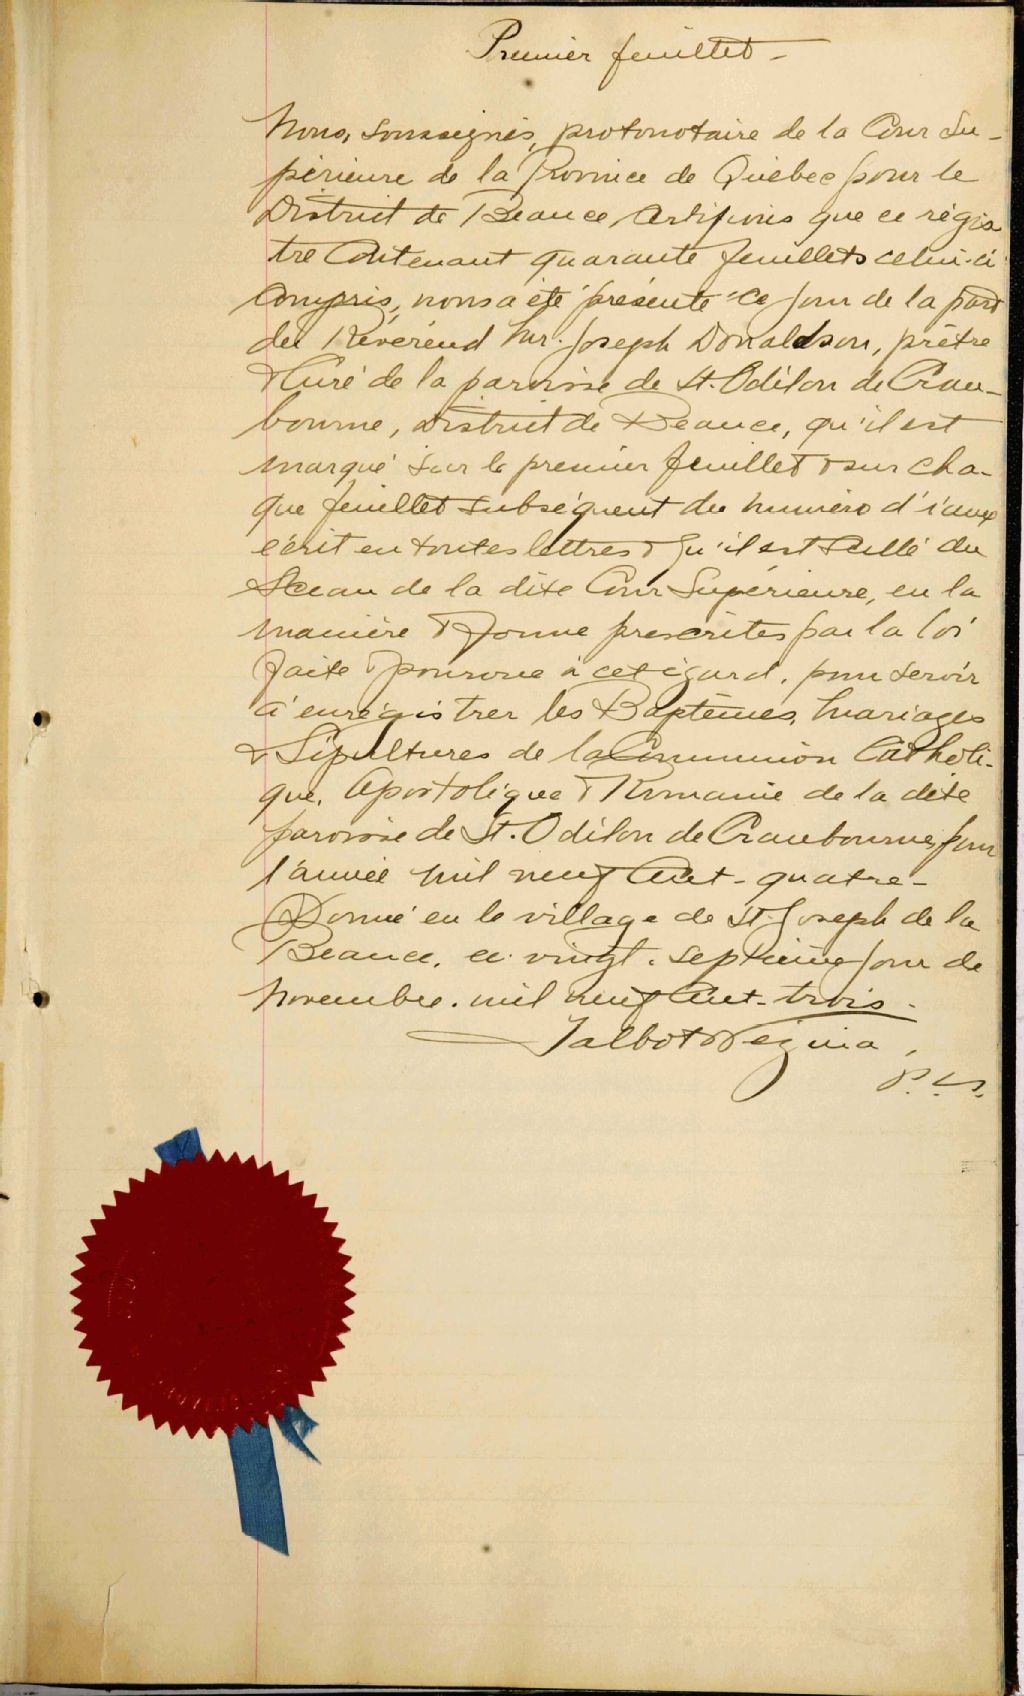 Premier feuillet -
Nous, soussignés, protonotaire de la Cour Su-
périeure de la Province de Québec pour le
District de Beauce, certifions que ce régis
tre contenant quarante feuillets celui-ci
compris, nous a été présenté ce jour de la part
du Révérend Mr. Joseph Donaldson, prêtre
& Curé de la paroisse de St. Odilon de Cran-
bourne, District de Beauce, qu'il est
marqué sur le premier feuillet & sur cha-
que feuillet subséquent du numéro d'iceux
écrit en toutes lettres & qu'il est scellé du
Sceau de la dite Cour Supérieure, en la
manière & forme prescrites par la loi
faite & pourvue à cet égard, pour servir
à enrégistrer les Baptêmes, Mariages
& Sépultures de la Communion Catholi-
que, Apostolique & Romaine de la dite
paroisse de St. Odilon de Cranbourne, pour
l'année mil neuf cent-quatre-
Donné en le village de St. Joseph de la
Beauce, ce vingt-septième jour de
Novembre, mil neuf cent-trois-
Talbot & Vézina,
P.C.S.